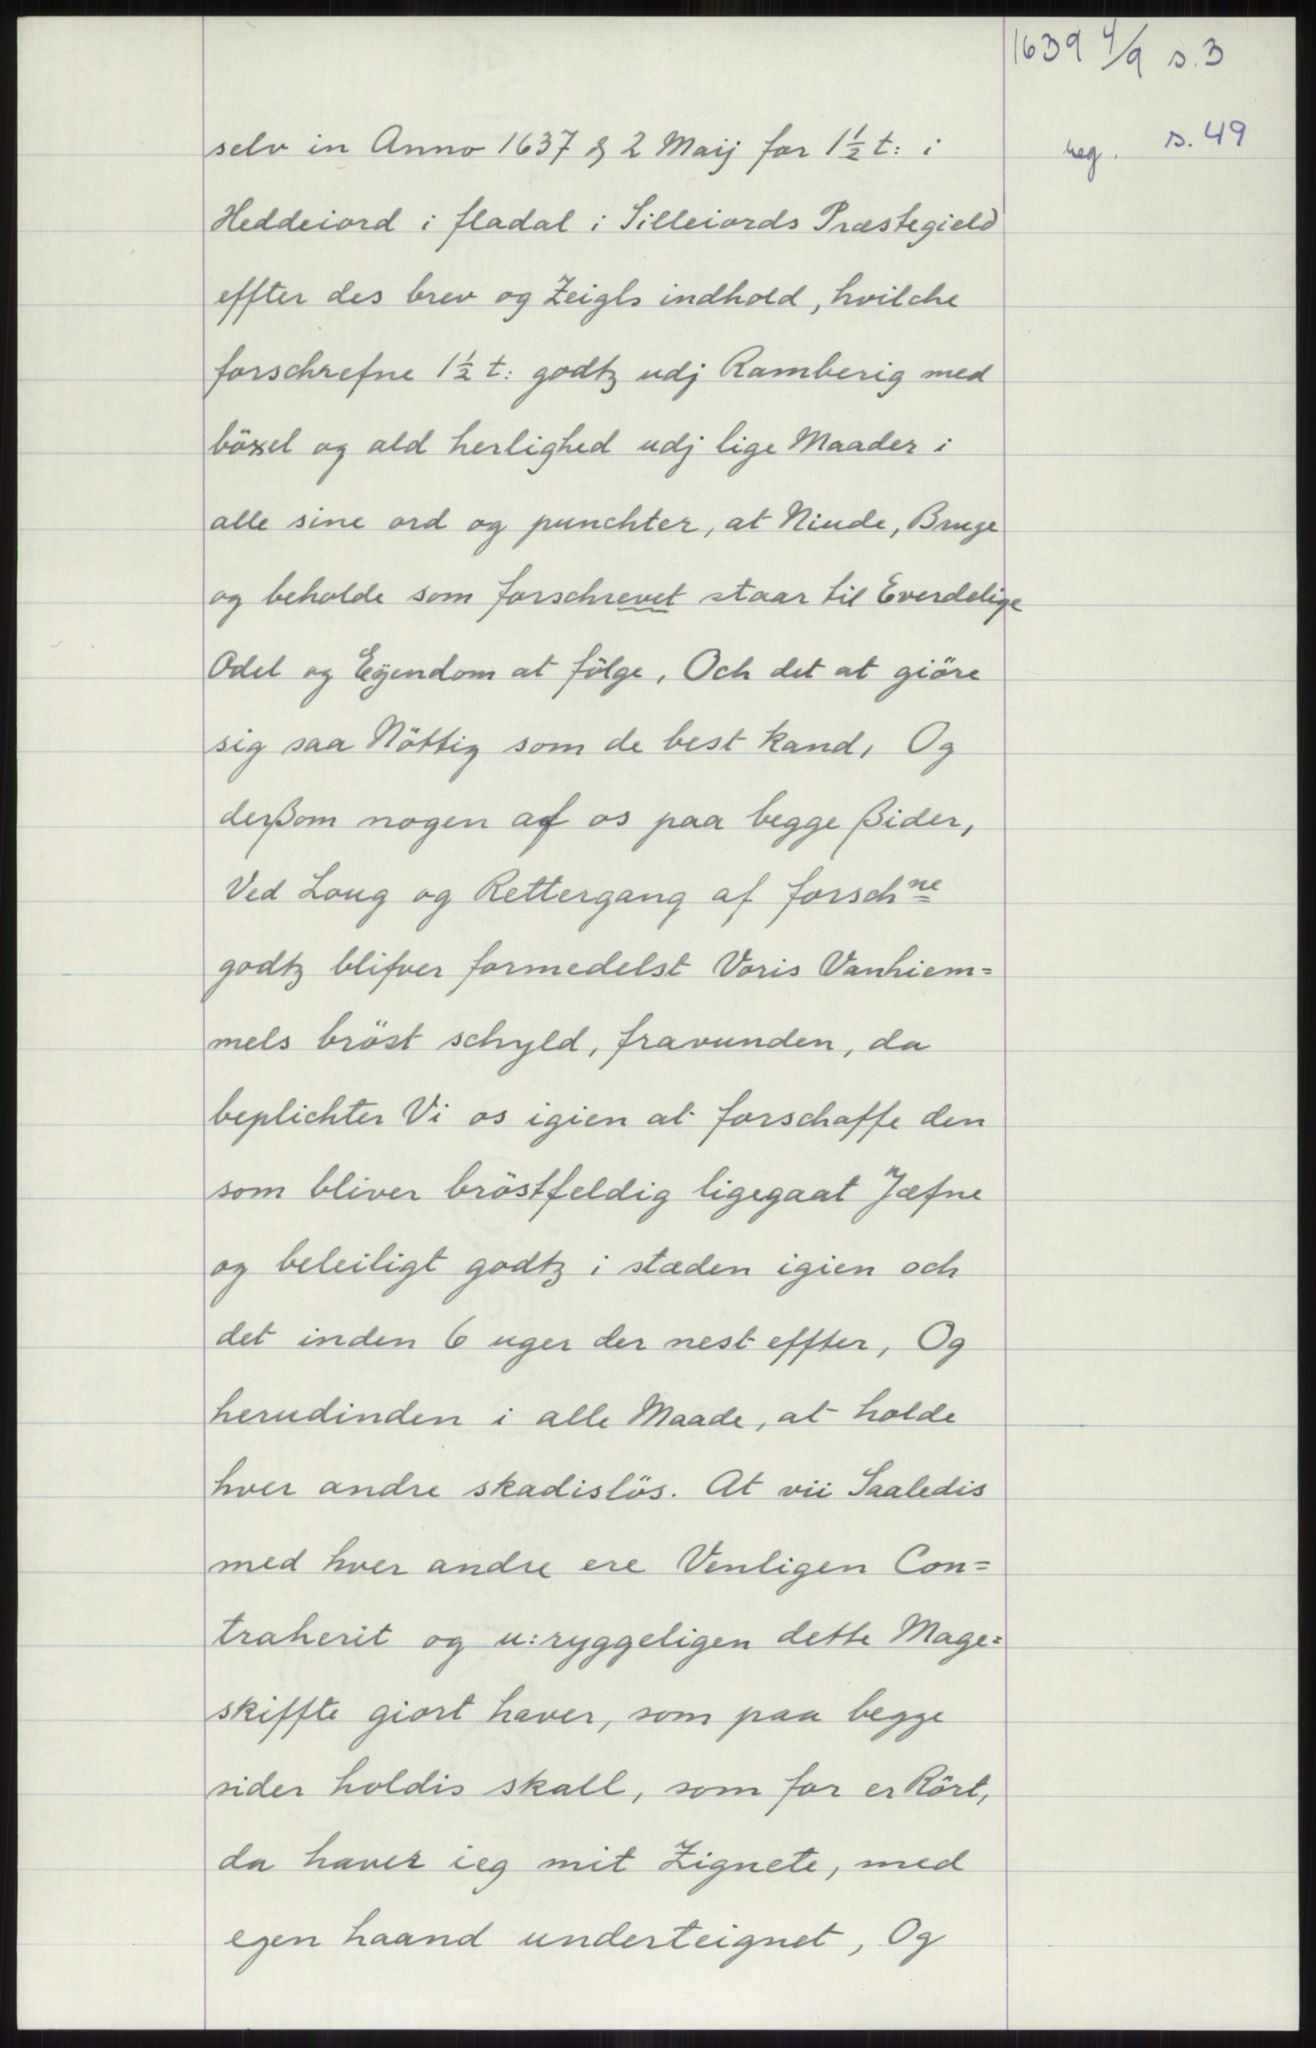 1639 4/9 s. 3
reg. s. 49
selv in Anno 1637 & 2 Maij for 1½ t: i
Heddeiord i fladal i Silleiords Præstegield
effter des brev og Zeigls indhold, hvilche
forschrefne 1½ t: godtz udj Ramberig med
böxel og ald herlighed udj lige Maader i
alle sine ord og punchter, at Niude, Bruge
og beholde som forschrevet staar til Everdelige
Odel og Eÿendom at fölge, Och det at giöre
sig saa Nöttig som de best kand, Og
derßom nogen af os paa begge ßider,
Ved Loug og Rettergang af forschne
godtz blifver formedelst Voris Vanhiem=
mels bröst schyld, fravunden, da
beplichter Vi os igien at forschaffe den
som bliver bröstfeldig ligegaat Jæfne
og beleiligt godtz i stæden igien och
det inden 6 uger der nest effter, Og
herudinden i alle Maade, at holde
hver andre skadislös. At vii Saaledis
med hver andre ere Venligen Con=
traherit og u:ryggeligen dette Mage=
skiffte giort haver, som paa begge
sider holdis skall, som for er Rört,
da haver ieg mit Zignete, med
egen haand underteignet, Og